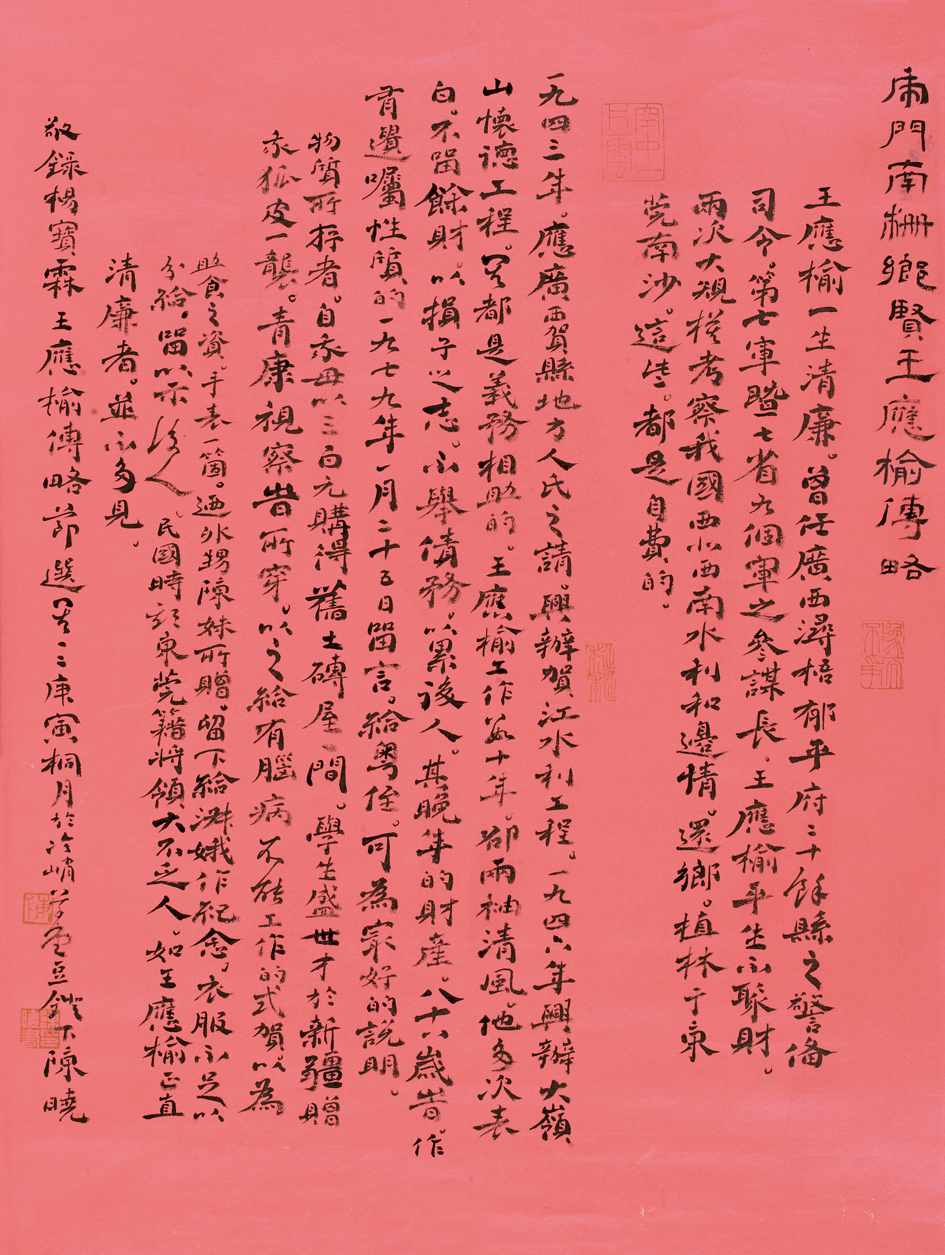 虎門南柵鄉賢王應榆傳略
王應榆一生清廉。曾任廣西潯梧郁平府二十餘縣之警備
司令。第七軍暨七省九個軍之參謀長。王應榆平生不聚財。
兩次大規模考察我國西北西南水利和邊情。還鄉。植林于東
莞南沙。這些。都是自費的。
一九四三年。應廣西賀縣地方人氏之請。興辦賀江水利工程。一九四六年興辦大嶺
山懷德工程。都是義務相助的。王應榆工作若十年。卻兩袖清風。他多次表
白。不留餘財。以損子之志。不舉債務。以累後人。其晚年的財產。八十八歲者。作
有遺囑性質的一九七九年一月二十五日留言。給粵侄。可為最好的說明。
物質所存者。自家母以三百元購得舊土磚屋一間。學生盛世才於新疆贈
衣狐皮一襲。青康視察皆所穿。以之給有腦病不能工作的式賀。以為
買食之資。手表一箇。乃外甥陳妹所贈。留下給淑娥作紀念。衣服不足以
分給。留以示後人。民國時期東莞籍將領大不乏人。如王應榆正直
清廉者。並不多見。
敬錄楊寶霖王應榆傳略節選 二庚寅桐月於 豆鐙下陳曉